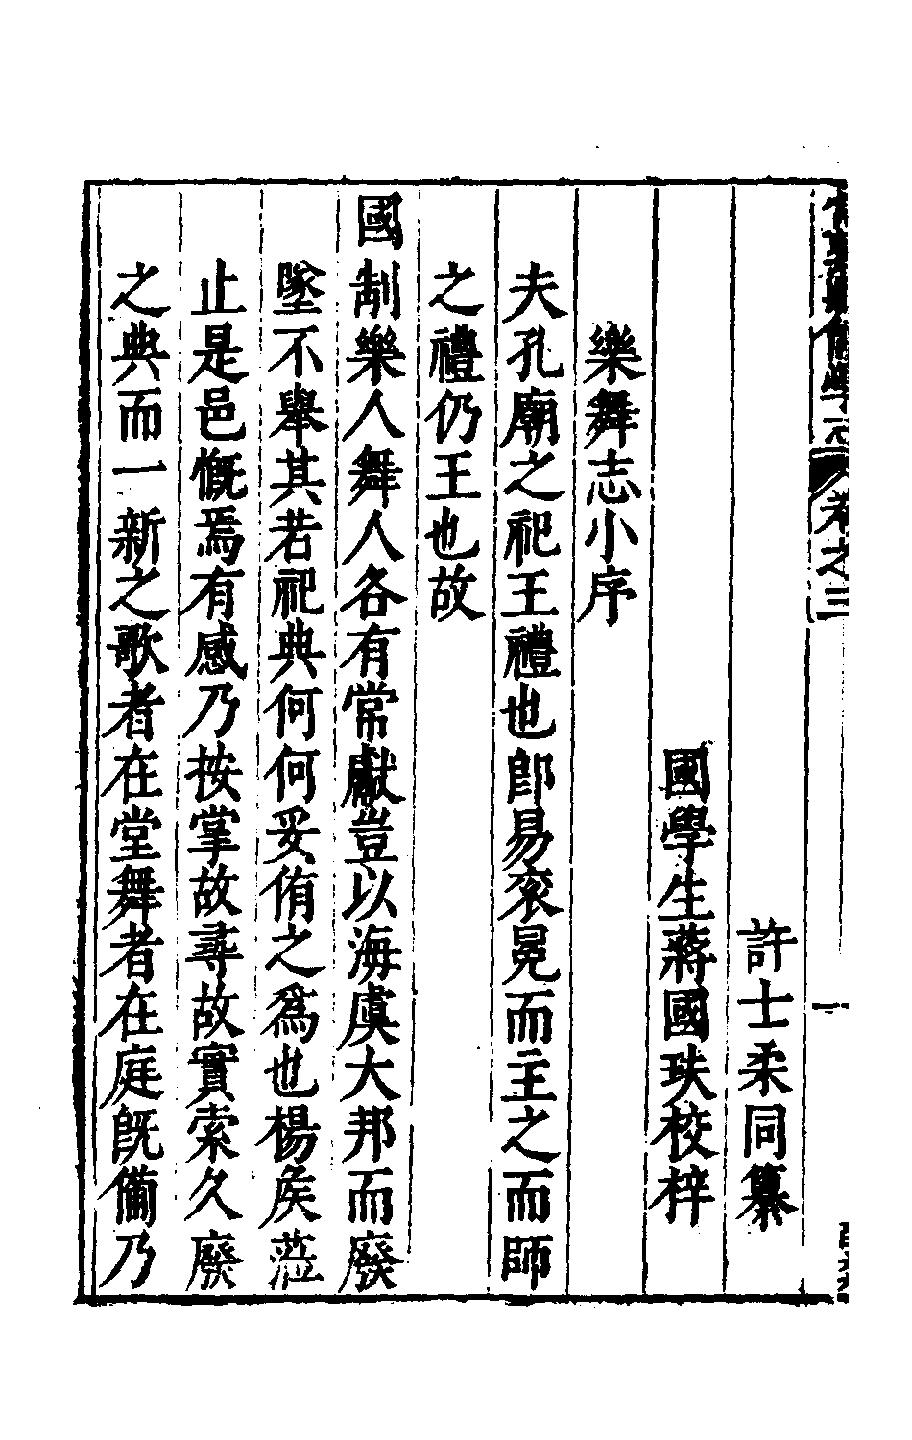 許士柔同纂
國學生蔣國玞校梓
樂舞志小序
夫孔廟之祀王禮也卽易衮冕而主之而師
之禮仍王也故
國制樂人舞人各有常獻豈以海虞大邦而廢
墜不舉其若祀典何何妥侑之爲也楊矦蒞
止是邑慨焉有感乃按掌故尋故實索久廢
之典而一新之歌者在堂舞者在庭旣備乃